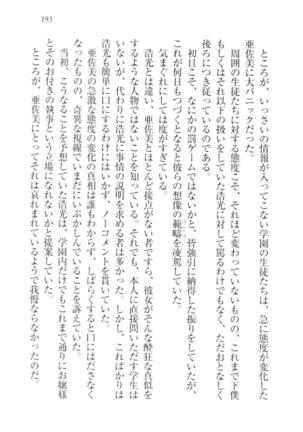 193
ところが、いっさいの情報が入ってこない学園の生徒たちは、急に態度が変化した
亜佐美に大パニックだった。
周囲の生徒たちに対する態度こそ、それほど変わっていないものの、これまで下僕
もしくはそれ以下の扱いをしていた浩光に対して罵るわけでもなく、ただおとなしく
後ろにつき従っているのである。
初日こそ、なにかの罰ゲームではないかと、皆強引に納得した振りをしていたが、
これが何日もつづくとなると彼らの想像の範疇を凌駕しており、
気まぐれにしては度がすぎている。
浩光とは違い、亜佐美とほとんど接点がない者ですら、彼女がそんな酔狂な真似を
するような人物ではないことを知っている。それでも、本人に直接問いただす学生は
いないが、代わりに浩光に事情の説明を求める者は多かった。しかし、こればかりは
浩光も簡単に口にするわけにはいかず、ノーコメントを貫いていた。
亜佐美の急激な態度の変化の真相は誰もわからず、しばらくすると口にはださなく
なったものの、奇異な視線でいまだにいぶかしんでいることを訴えていた。
当初、こうなることを予想していた浩光は、学園内だけでもこれまで通りにお嬢様
とそのお付きの執事という立場になれないかと提案していた。
ところが、亜佐美にとってそれは哀れまれているようで我慢ならなかったのだ。